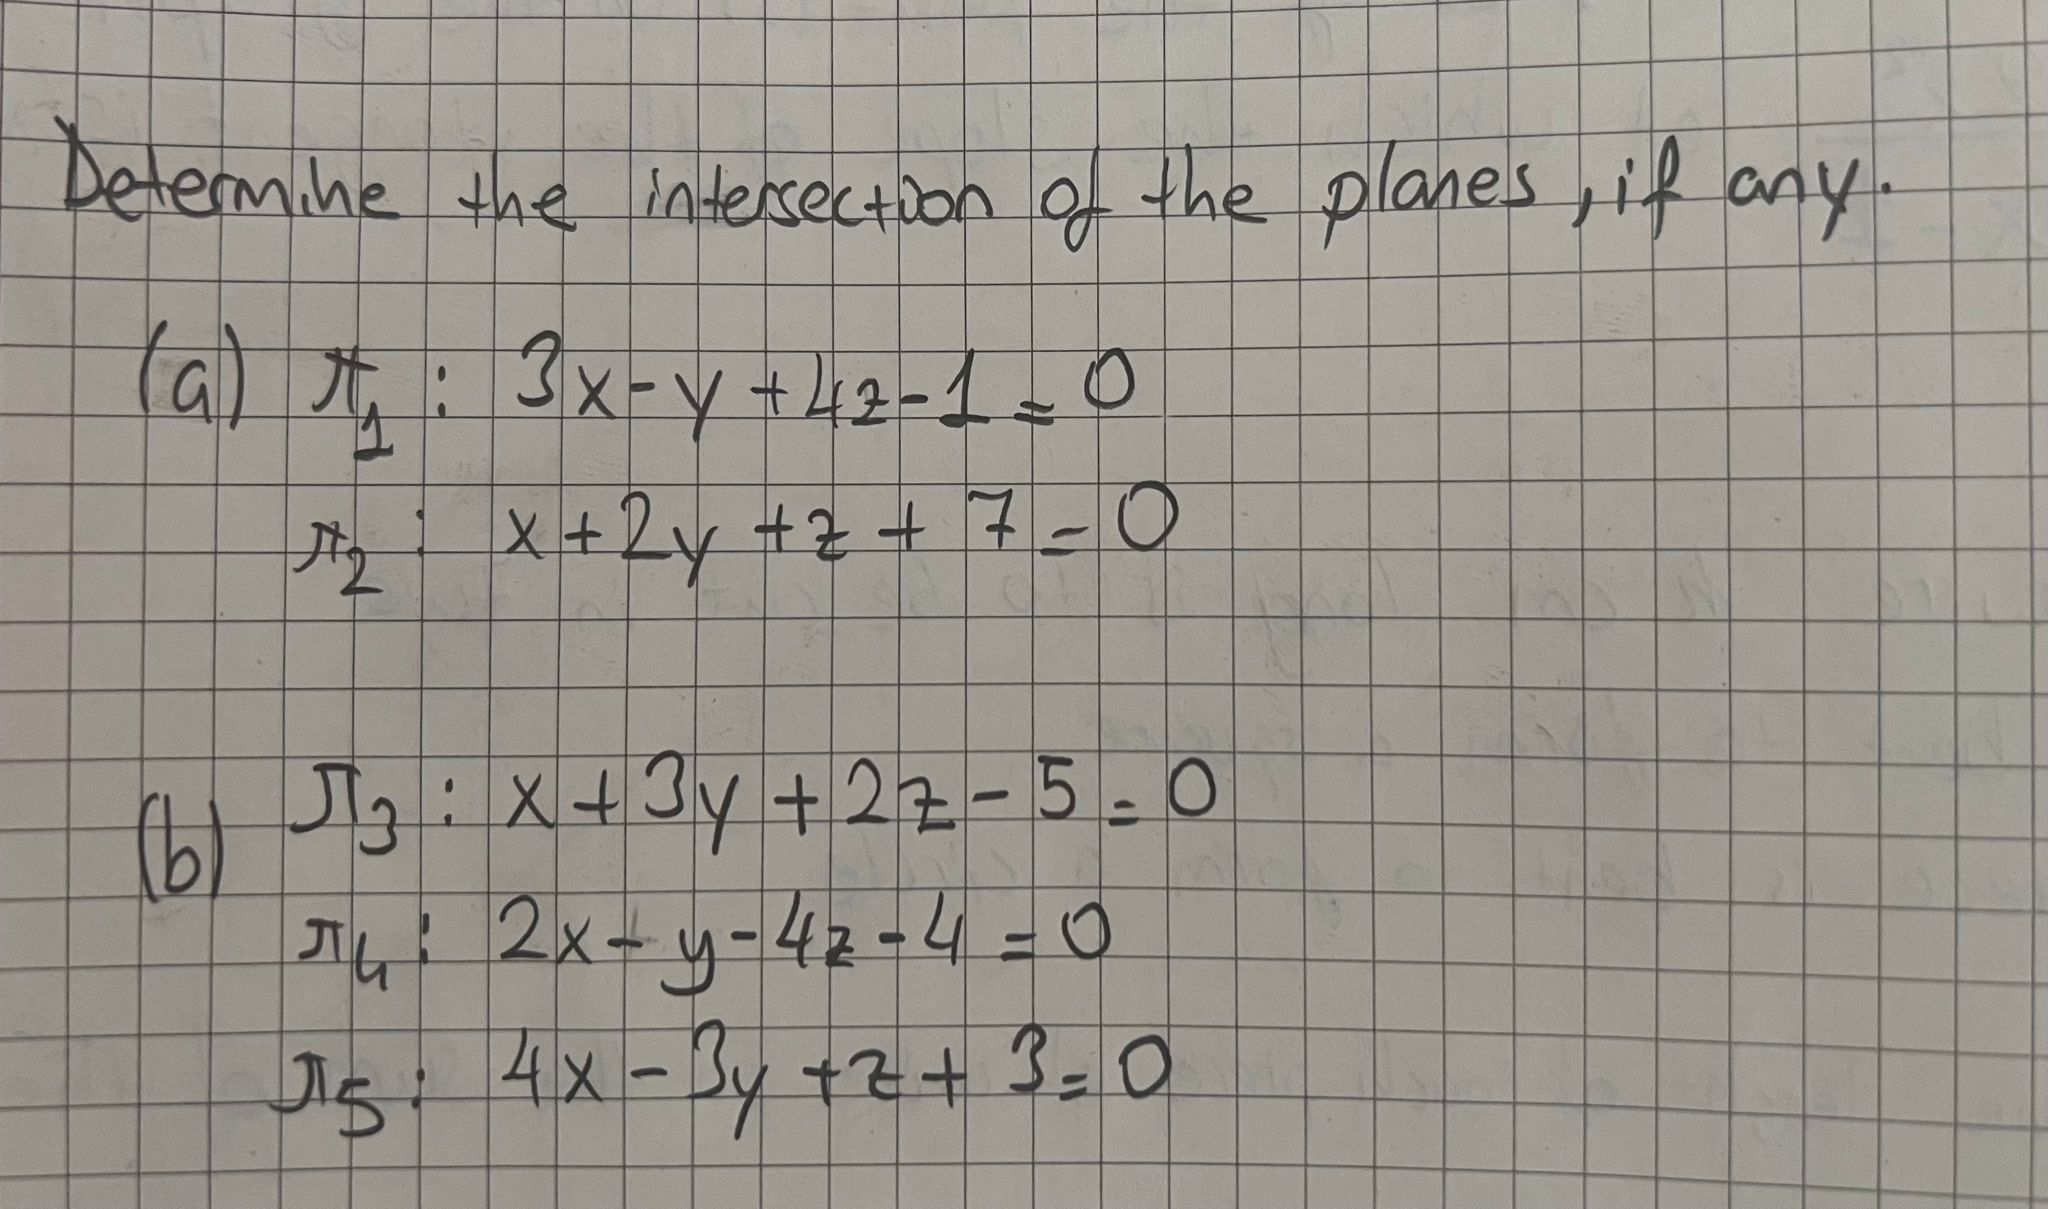 Determine the intersection of the planes, if any.
(a) π₁ : 3x - y + 4z - 1 = 0
π₂ : x + 2y + z + 7 = 0
(b) π₃ : x + 3y + 2z - 5 = 0
π₄ : 2x - y - 4z - 4 = 0
π₅ : 4x - 3y + z + 3 = 0